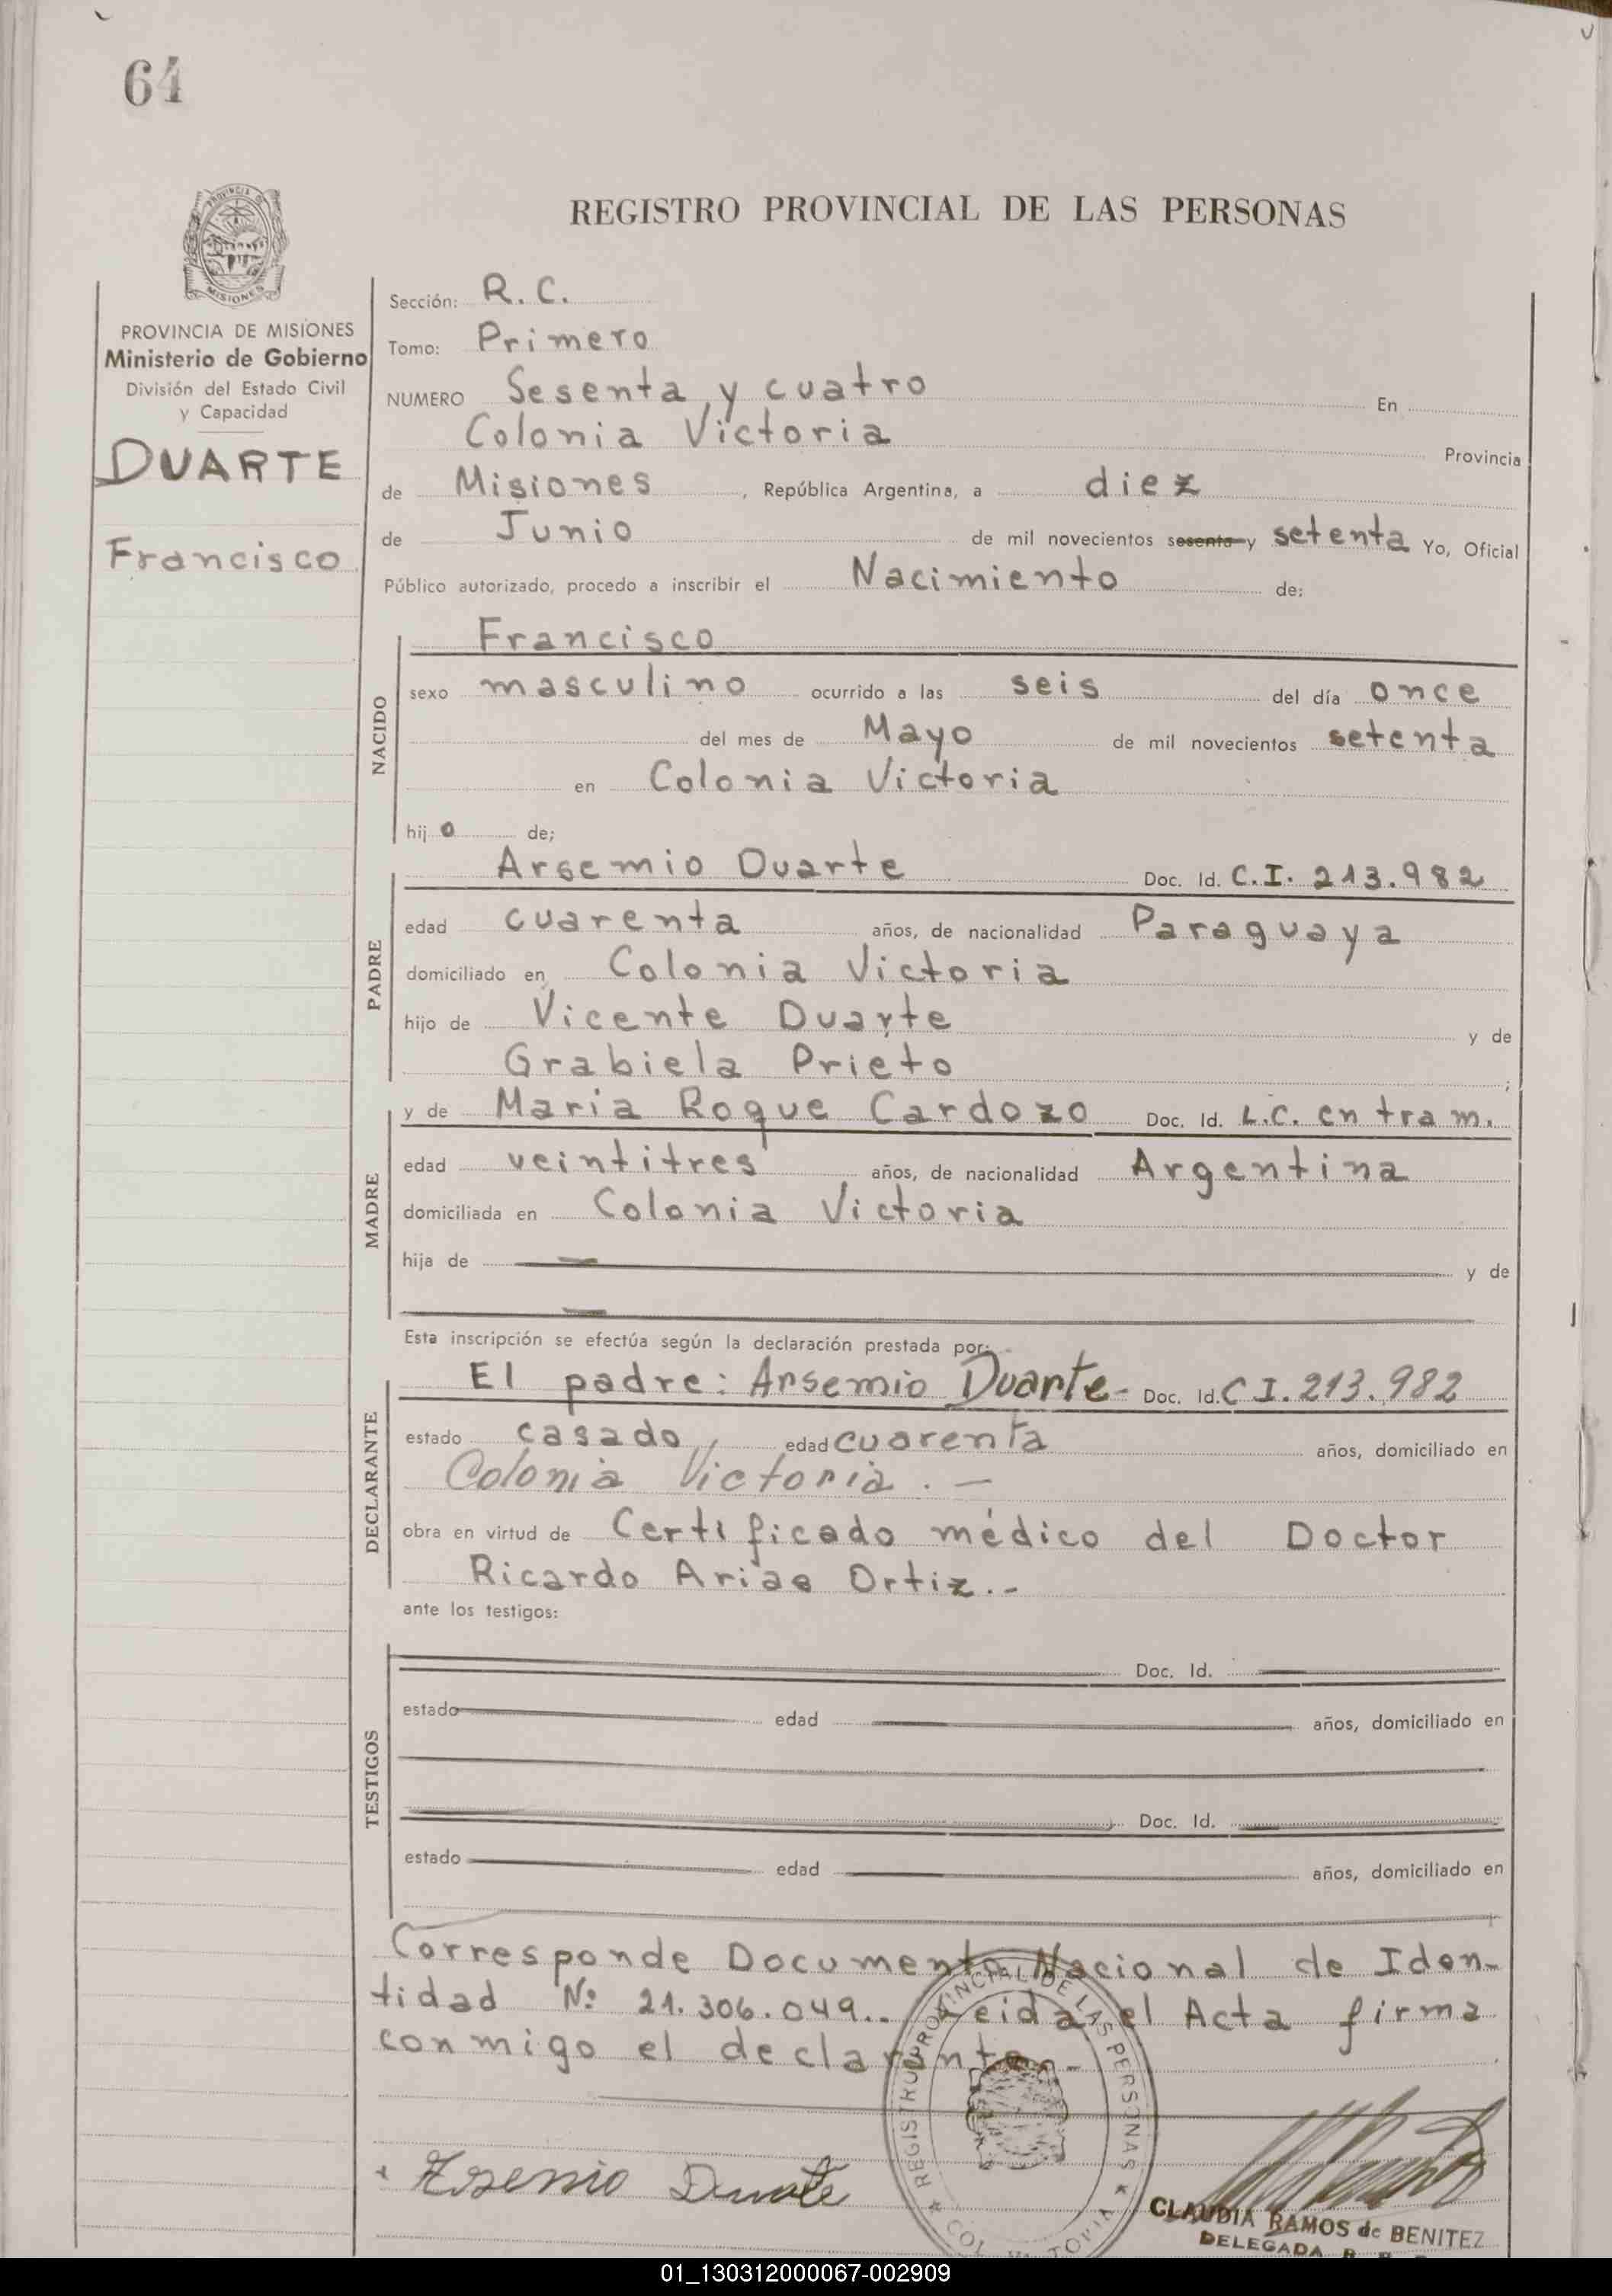 64
REGISTRO PROVINCIAL DE LAS PERSONAS
PROVINCIA DE MISIONES
Ministerio de Gobierno
División del Estado Civil
y Capacidad
DUARTE
Francisco
Sección: R. C.
Tomo: Primero
NUMERO Sesenta y cuatro En
Colonia Victoria Provincia
de Misiones, República Argentina, a diez
de Junio de mil novecientos sesenta y setenta Yo, Oficial
Público autorizado, procedo a inscribir el Nacimiento de:
NACIDO
Francisco
sexo masculino ocurrido a las seis del día once
del mes de Mayo de mil novecientos setenta
en Colonia Victoria
hij o de;
PADRE
Arsemio Duarte Doc. Id. C.I. 213.982
edad cuarenta años, de nacionalidad Paraguaya
domiciliado en Colonia Victoria
hijo de Vicente Duarte y de
Grabiela Prieto ;
MADRE
y de Maria Roque Cardozo Doc. Id. L.C. en tram.
edad veintitres años, de nacionalidad Argentina
domiciliada en Colonia Victoria
hija de — y de
—
Esta inscripción se efectúa según la declaración prestada por:
DECLARANTE
El padre: Arsemio Duarte- Doc. Id. C I. 213.982
estado casado, edad cuarenta años, domiciliado en
Colonia Victoria . —
obra en virtud de Certificado médico del Doctor
Ricardo Arias Ortiz.-
ante los testigos:
TESTIGOS
Doc. Id.
estado edad años, domiciliado en
Doc. Id.
estado edad años, domiciliado en
Corresponde Documento Nacional de Iden-
tidad Nº 21.306.049.. Leida el Acta firma
conmigo el declarante.-
REGISTRO PROVINCIAL DE LAS PERSONAS
Arsenio Duarte
CLAUDIA RAMOS de BENITEZ
DELEGADA
01_130312000067-002909